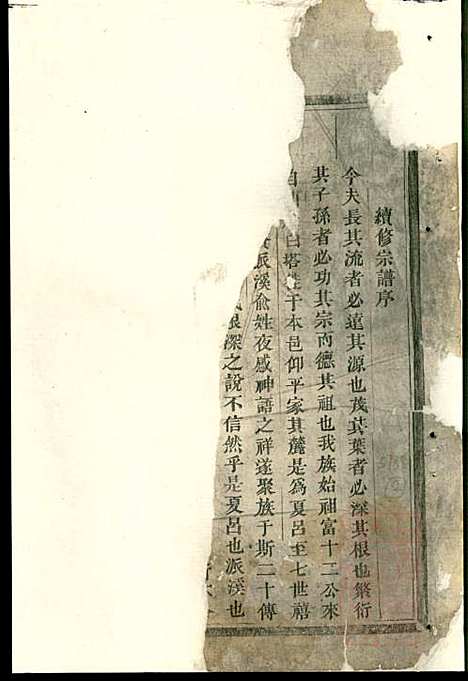 續修宗譜序
今夫長其流者必遠其源也茂其葉者必深其根也繁衍
其子孫者必功其宗而德其祖也我族始祖富十二公來
自 白塔 于本邑仰平家其麓是為夏呂至七世禧
派溪俞姓夜感神語之祥遂聚族于斯二十傳
根深之說不信然乎是夏呂也派溪也